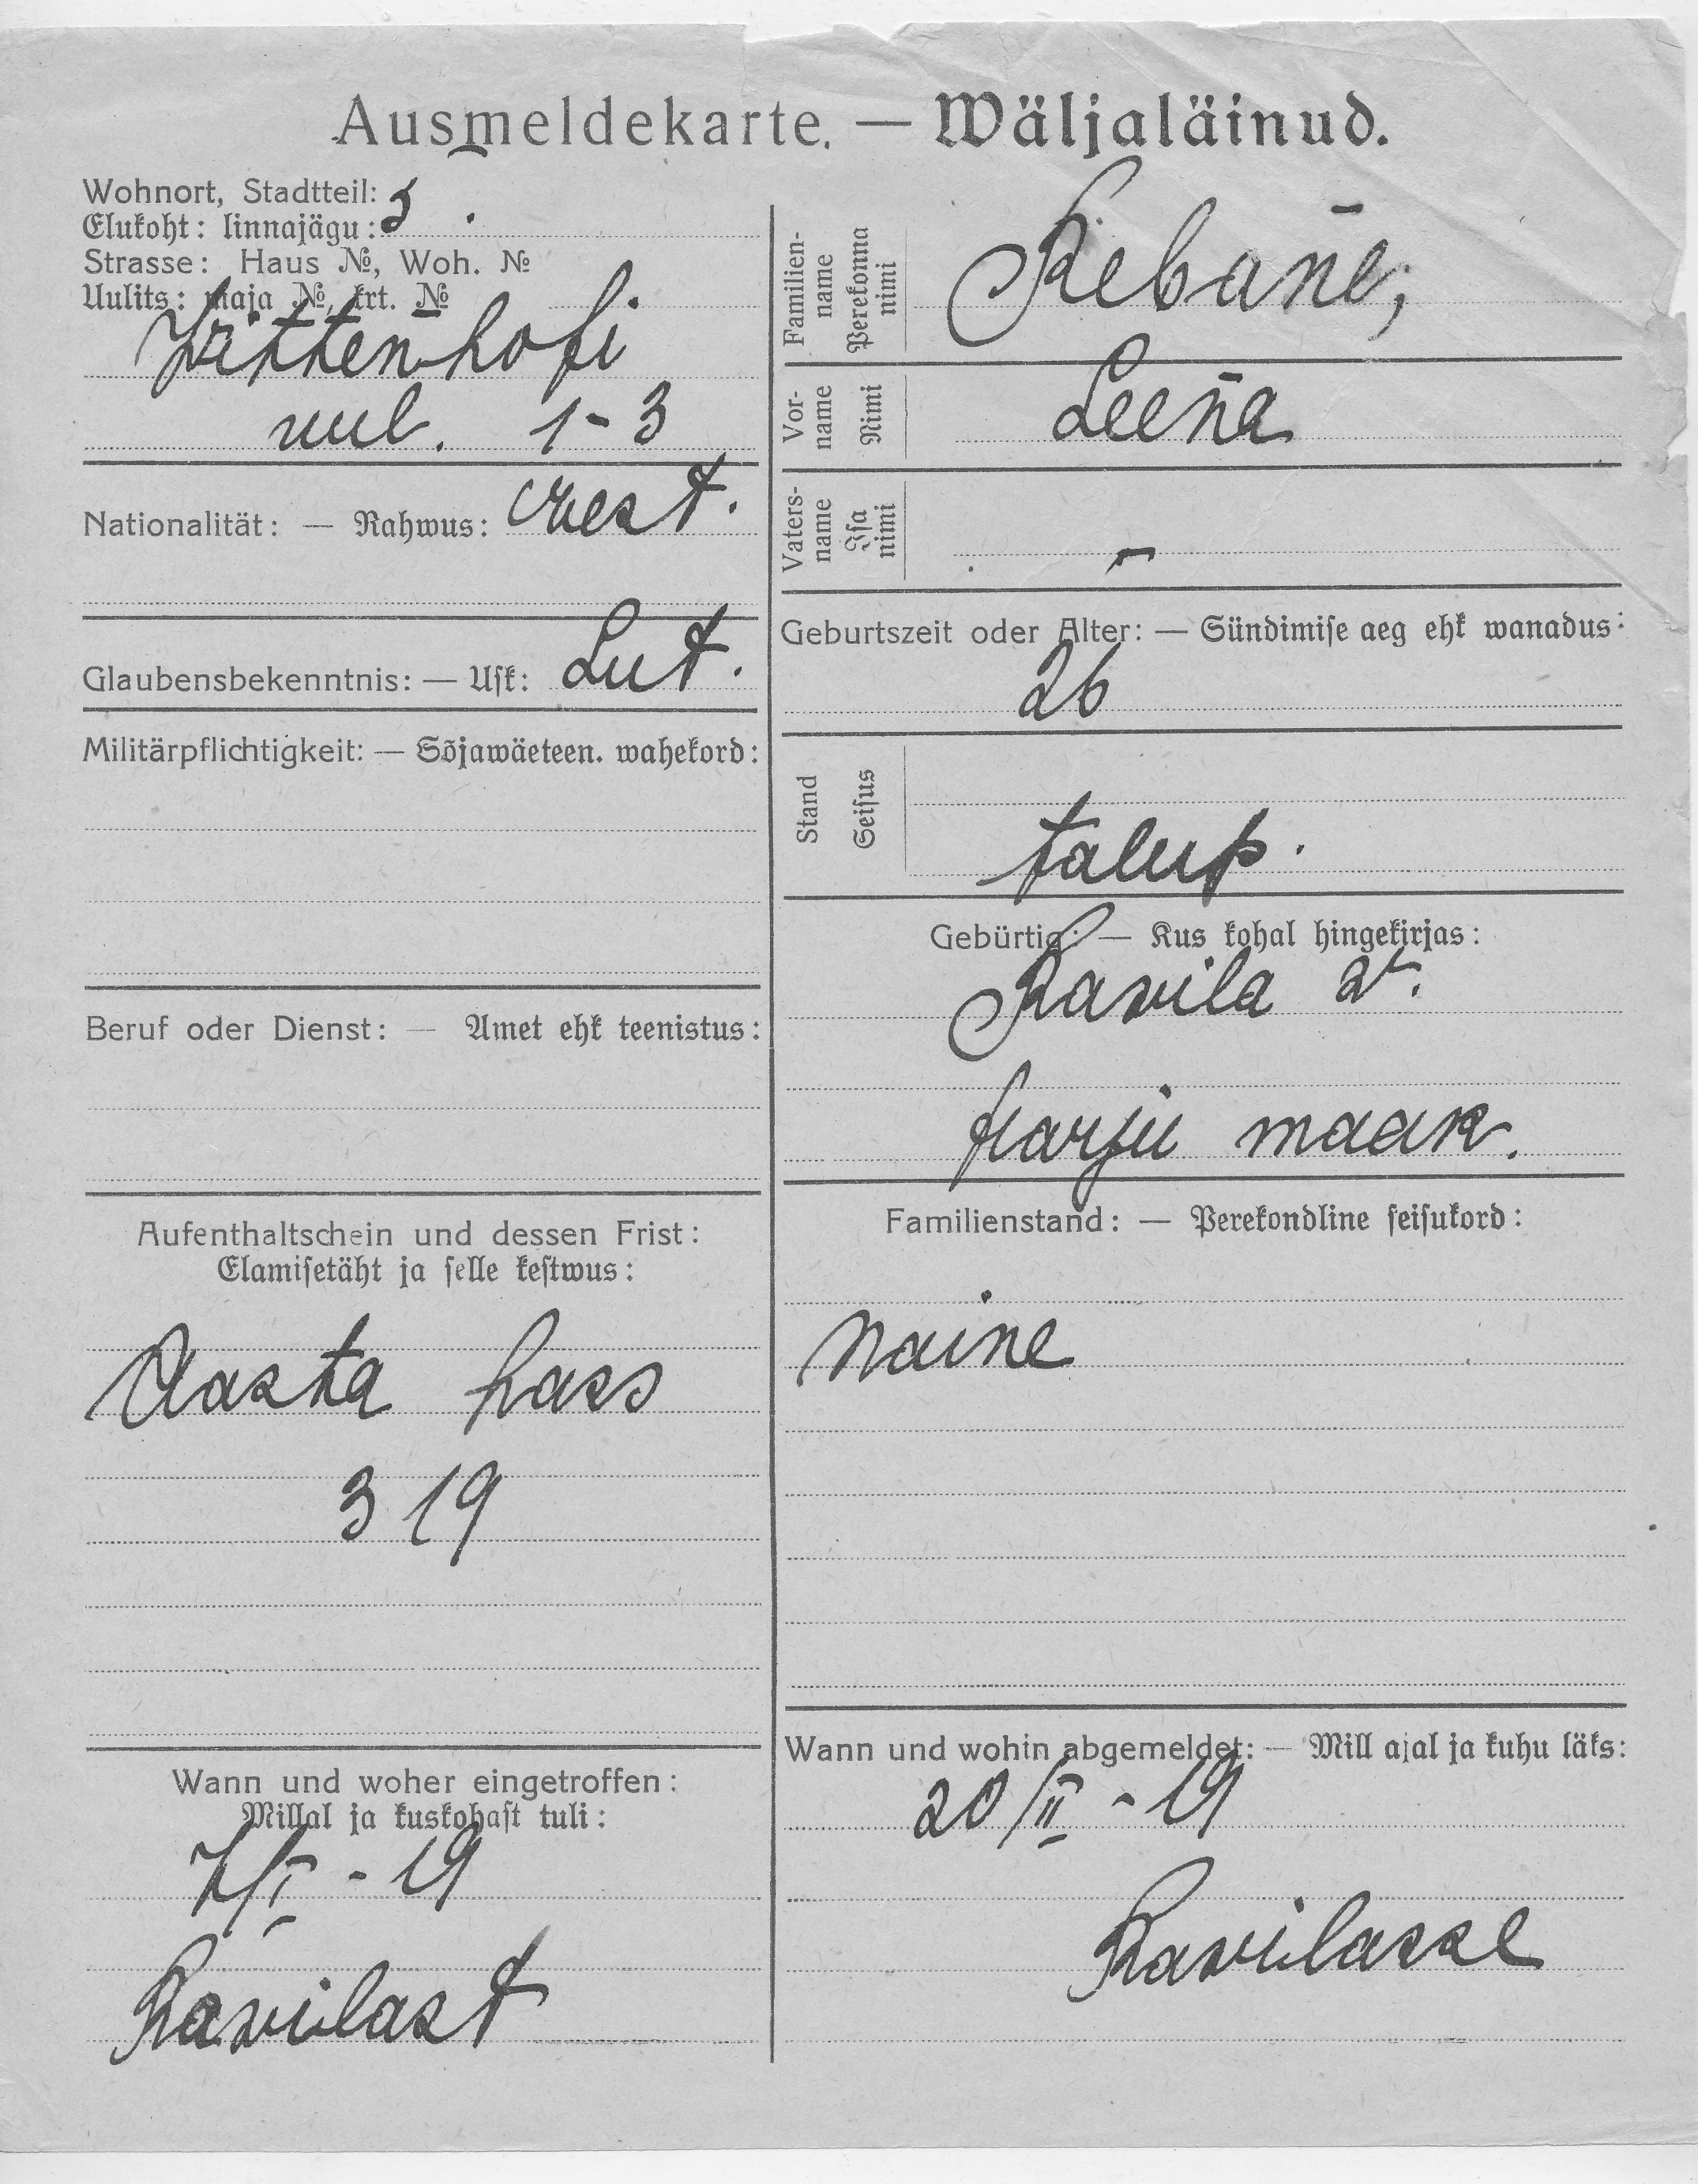 Ausmeldekarte. — Wäljaläinud.
Wohnort, Stadtteil:
Elukoht: linnajägu: 3.
Strasse: Haus №, Woh. №
Uulits: maja №, krt. №
Wittenhofi
uul. 1-3
Nationalität: — Rahwus: eest.
Glaubensbekenntnis: — Usk: Lut.
Militärpflichtigkeit: — Sõjawäeteen. wahekord:
Beruf oder Dienst: — Amet ehk teenistus:
Aufenthaltschein und dessen Frist:
Elamisetäht ja selle kestwus:
Aasta pass
319
Wann und woher eingetroffen:
Millal ja kuskohast tuli:
7/I - 19
Ravilast
Familien-
name
Perekonna
nimi
Rebane,
Vor-
name
Nimi
Leena
Vaters-
name
Isa
nimi
-
Geburtszeit oder Alter: — Sündimise aeg ehk wanadus:
26
Stand
Seisus
talup.
Gebürtig: — Kus kohal hingekirjas:
Ravila v.
Harju maak.
Familienstand: — Perekondline seisukord:
naine
Wann und wohin abgemeldet: — Mill ajal ja kuhu läks:
20/II - 19
Ravilasse